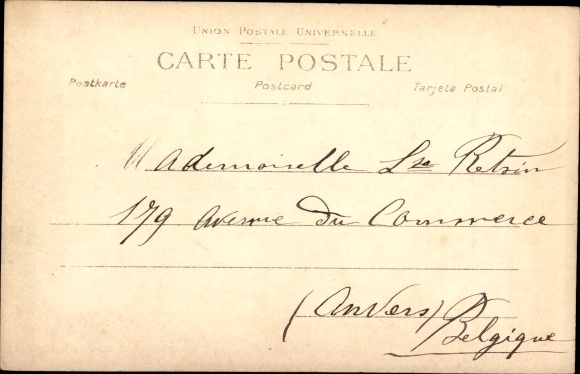 UNION POSTALE UNIVERSELLE
CARTE POSTALE
Postkarte Postcard Tarjeta Postal
Mademoiselle Lsa Retsin
179 Avenue du Commerce
(Anvers)
Belgique